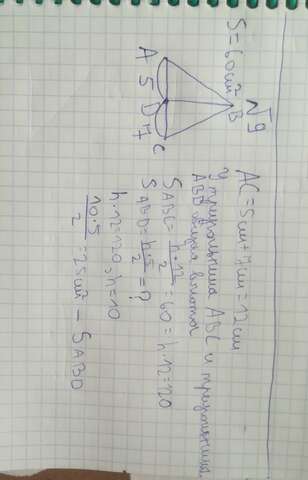 √9
S=60см²
B
A 5 D 7 C
AC=5см+7см=12см
У треугольника ABC и треугольника
ABD общая высота
S ABC = h·12/2 = 60 = h·12=120
S ABD = h·5/2 = ?
h·12=120, h=10
10·5/2 = 25см² – S ABD